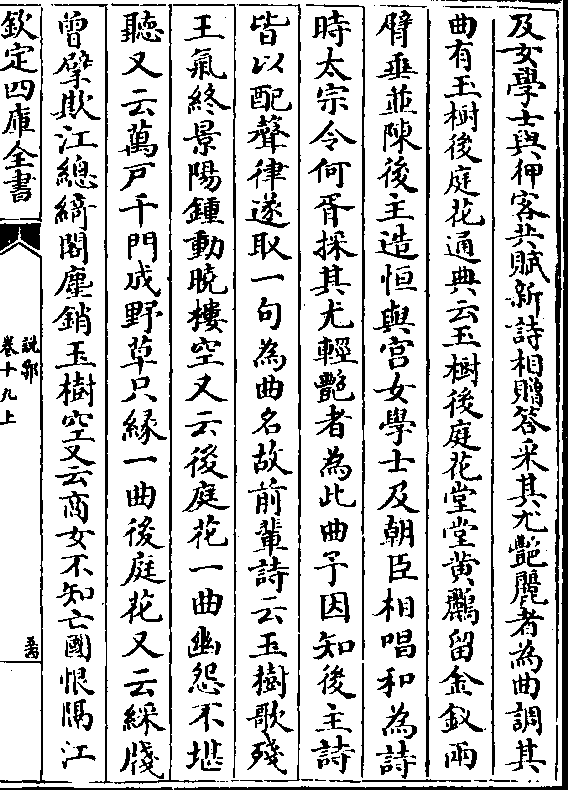 及女學士與狎客共賦新詩相贈答采其尤艷麗者為曲調其
曲有玉樹後庭花通典云玉樹後庭花堂堂黄鸝留金釵兩
臂垂並陳後主造恒與宫女學士及朝臣相唱和為詩
時太宗令何胥採其尤輕艷者為此曲予因知後主詩
皆以配聲律遂取一句為曲名故前輩詩云玉樹歌殘
王氣終景陽鍾動曉樓空又云後庭花一曲幽怨不堪
聽又云萬户千門成野草只緣一曲後庭花又云綵牋
曾擘欺江總綺閣塵銷玉樹空又云商女不知亡國恨隔江
欽定四庫全書
說郛
卷十九上